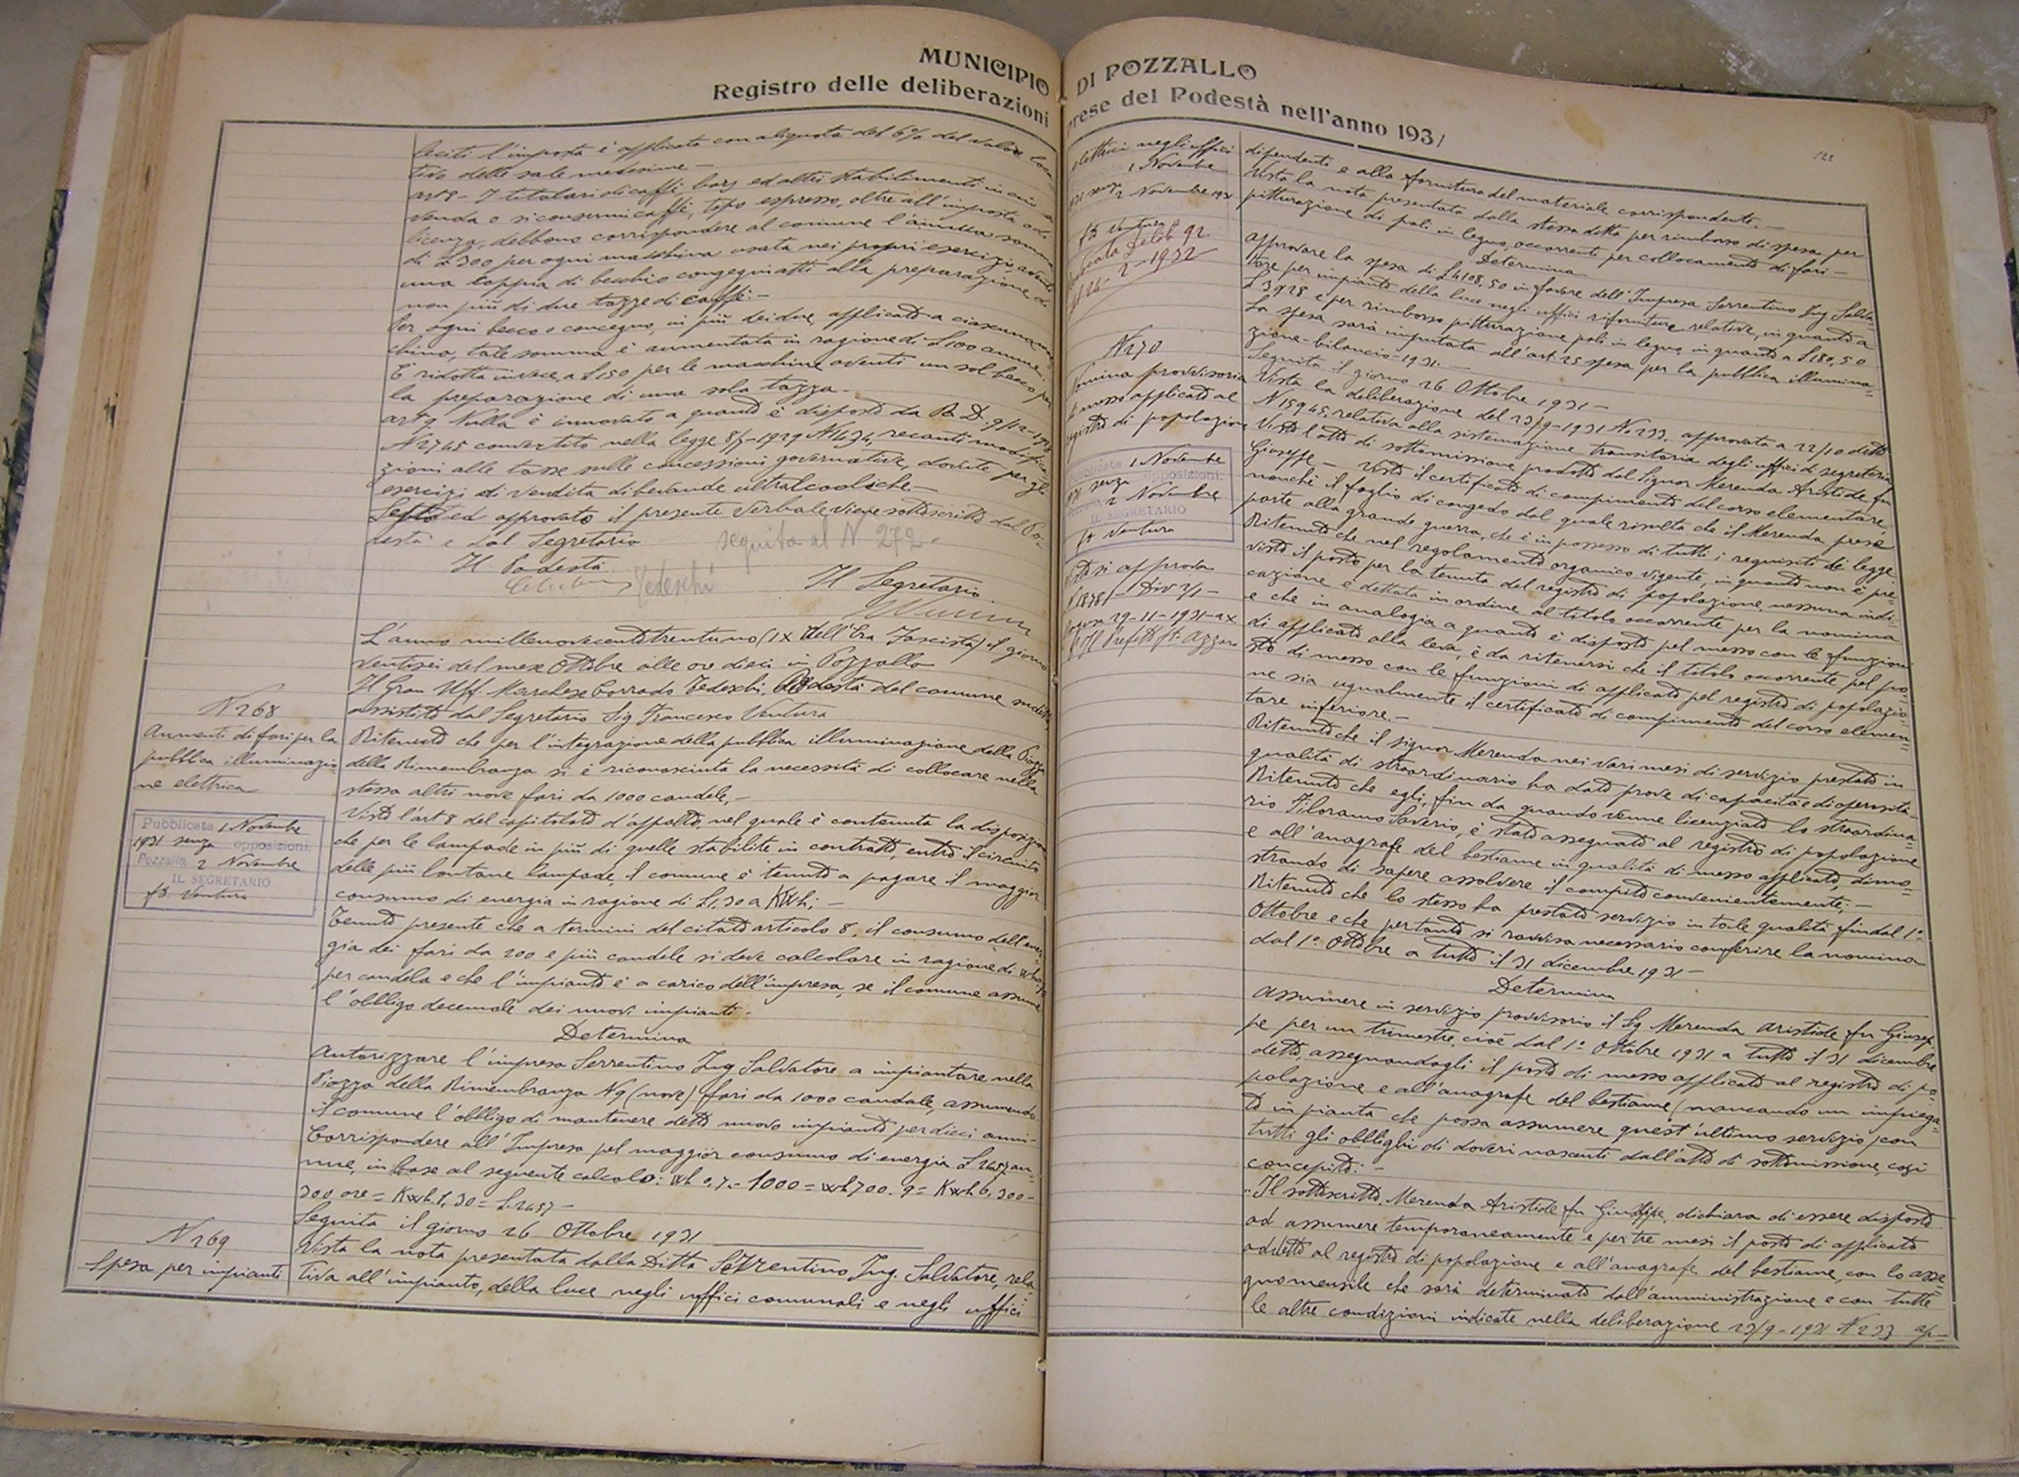 MUNICIPIO DI POZZALLO
Registro delle deliberazioni prese del Podestà nell'anno 1931
l'imposta è applicata con aliquota del 6% del valore loca
tivo delle sale medesime -
art 8 - I titolari di caffè, bars ed altri stabilimenti in cui si
venda o si consumi caffè, tipo espresso, oltre all'imposta di
licenza, debbono corrispondere al comune l'annua somma
di £ 300 per ogni macchina usata nei propri esercizi, avente
una coppia di becchi o congegni atti alla preparazione di
non più di due tazze di caffè. -
Per ogni becco o congegno, in più dei due, applicato a ciascuna mac
china, tale somma è aumentata in ragione di £ 100 annue.
È ridotta invece, a £ 150 per le macchine aventi un sol becco, per
la preparazione di una sola tazza. -
art 9 Nulla è innovato a quanto è disposto da R. D. 9/12-1928
N 2745 convertito nella legge 8/7-1929 N 1434, recanti modifica
zioni alle tasse sulle concessioni governative, dovute per gli
esercizi di vendita di bevande ultralcooliche -
Letto ed approvato il presente verbale viene sottoscritto dal Po-
destà e dal Segretario
seguito al N 272 -
Il Podestà
Tedeschi
Il Segretario
L'anno millenovecentotrentuno (IX dell'Era Fascista) il giorno
ventisei del mese Ottobre alle ore dieci in Pozzallo
Il Gran Uff. Marchese Corrado Tedeschi, Podestà del comune suddetto
assistito dal Segretario Sig Francesco Ventura
N 268
Aumenti di fari per la
pubblica illuminazio
ne elettrica
Pubblicata 1 Novembre
1931 senza opposizioni.
Pozzallo, 2 Novembre
IL SEGRETARIO
fto Ventura
Ritenuto che per l'integrazione della pubblica illuminazione della Piazza
della Rimembranza si è riconosciuta la necessità di collocare nella
stessa altri nove fari da 1000 candele, -
Visto l'art 8 del capitolato d'appalto, nel quale è contenuta la disposizione
che per le lampade in più di quelle stabilite in contratto, entro il circuito
delle più lontane lampade, il comune è tenuto a pagare il maggior
consumo di energia in ragione di £ 1,30 a Kwh; -
Tenuto presente che a termini del citato articolo 8, il consumo dell'ener-
gia dei fari da 200 e più candele si deve calcolare in ragione di wh 0,70
per candela e che l'impianto è a carico dell'impresa, se il comune assume
l'obbligo decennale dei nuovi impianti -
Determina
Autorizzare l'impresa Serrentino Ing Salvatore a impiantare nella
Piazza della Rimembranza N 9 (nove) fari da 1000 candele, assumendo
il comune l'obbligo di mantenere detto nuovo impianto per dieci anni -
Corrispondere all'Impresa pel maggior consumo di energia £ 2457 an-
nue, in base al seguente calcolo: wh 0,7 - 1000 = wh 700. 9 = Kwh 6,300 -
300 ore = Kwh 1,30 = £ 2457 -
N 269
Spesa per impianti
Seguita il giorno 26 Ottobre 1931
Vista la nota presentata dalla Ditta Serrentino Ing. Salvatore, rela
tiva all'impianto, della luce negli uffici comunali e negli uffici
122
elettrici negli uffici
1 Novembre
1931 senza
2 Novembre 1931
fto Ventura
Delib 92
2-1932
dipendenti e alla fornitura del materiale corrispondente. -
Vista la nota presentata dalla stessa ditta per rimborso di spesa per
pitturazione di pali in legno, occorrenti per collocamento di fari -
Determina
approvare la spesa di £ 4108,50 in favore dell'Impresa Serrentino Ing Salva-
tore per impianto della luce negli uffici e forniture relative, in quanto a
£ 3928 e per rimborso pitturazione pali in legno in quanto a £ 180,50
La spesa sarà imputata all'art. 25 spesa per la pubblica illumina-
zione - bilancio - 1931. -
N 270
Nomina provvisoria
di messo applicato al
registro di popolazione
Pubblicata 1 Novembre
1931 senza opposizioni.
Pozzallo, 2 Novembre
IL SEGRETARIO
fto Ventura
Visto si approva
N 18381 - Div 2/1 -
Ragusa 29-11-1931-ax
Il Prefetto
Seguita il giorno 26 Ottobre 1931 -
Vista la deliberazione del 23/9-1931 N. 233, approvata a 22/10 detto
N 15945, relativa alla sistemazione transitoria degli uffici di segreteria
Visto l'atto di sottomissione prodotto dal Signor Merenda Aristide fu
Giuseppe - Visto il certificato di compimento del corso elementare
nonchè il foglio di congedo dal quale risulta che il Merenda prese
parte alla grande guerra, che è in possesso di tutti i requisiti di legge.
Ritenuto che nel regolamento organico vigente, in quanto non è pre-
visto il posto per la tenuta del registro di popolazione nessuna indi
cazione è dettata in ordine al titolo occorrente per la nomina
e che in analogia a quanto è disposto pel messo con le funzioni
di applicato alla leva, è da ritenersi che il titolo occorrente pel po
sto di messo con le funzioni di applicato pel registro di popolazio-
ne sia ugualmente il certificato di compimento del corso elemen-
tare inferiore. -
Ritenuto che il signor Merenda nei vari mesi di servizio prestato in
qualità di straordinario ha dato prove di capacità e di operosità
Ritenuto che egli, fin da quando venne licenziato lo straordina-
rio Filoramo Saverio, è stato assegnato al registro di popolazione
e all'anagrafe del bestiame in qualità di messo applicato, dimo-
strando di sapere assolvere il compito convenientemente; -
Ritenuto che lo stesso ha prestato servizio in tale qualità fin dal 1°
Ottobre e che pertanto si ravvisa necessario conferire la nomina
dal 1° Ottobre a tutto il 31 dicembre 1931 -
Determina
assumere in servizio provvisorio il Sig Merenda Aristide fu Giusep
pe per un trimestre, cioè dal 1° Ottobre 1931 a tutto il 31 dicembre
detto, assegnandogli il posto di messo applicato al registro di po
polazione e all'anagrafe del bestiame (mancando un impiega-
to in pianta che possa assumere quest'ultimo servizio) con
tutti gli obblighi di doveri nascenti dall'atto di sottomissione, così
concepito: -
"Il sottoscritto, Merenda Aristide fu Giuseppe, dichiara di essere disposto
ad assumere temporaneamente e per tre mesi il posto di applicato
addetto al registro di popolazione e all'anagrafe del bestiame, con lo asse-
gno mensile che sarà determinato dall'amministrazione e con tutte
le altre condizioni indicate nella deliberazione 23/9-1931 N 233 ap-